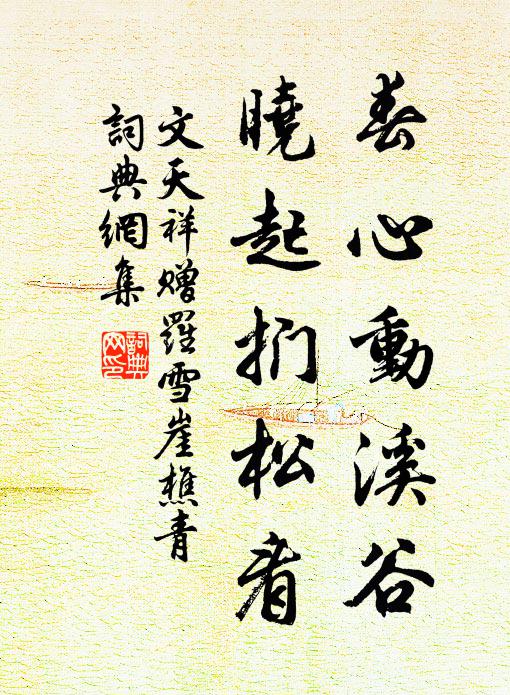 春心動溪谷
曉起捫松看
文天祥贈羅雪崖樵青
詞典網集
詞典
网印